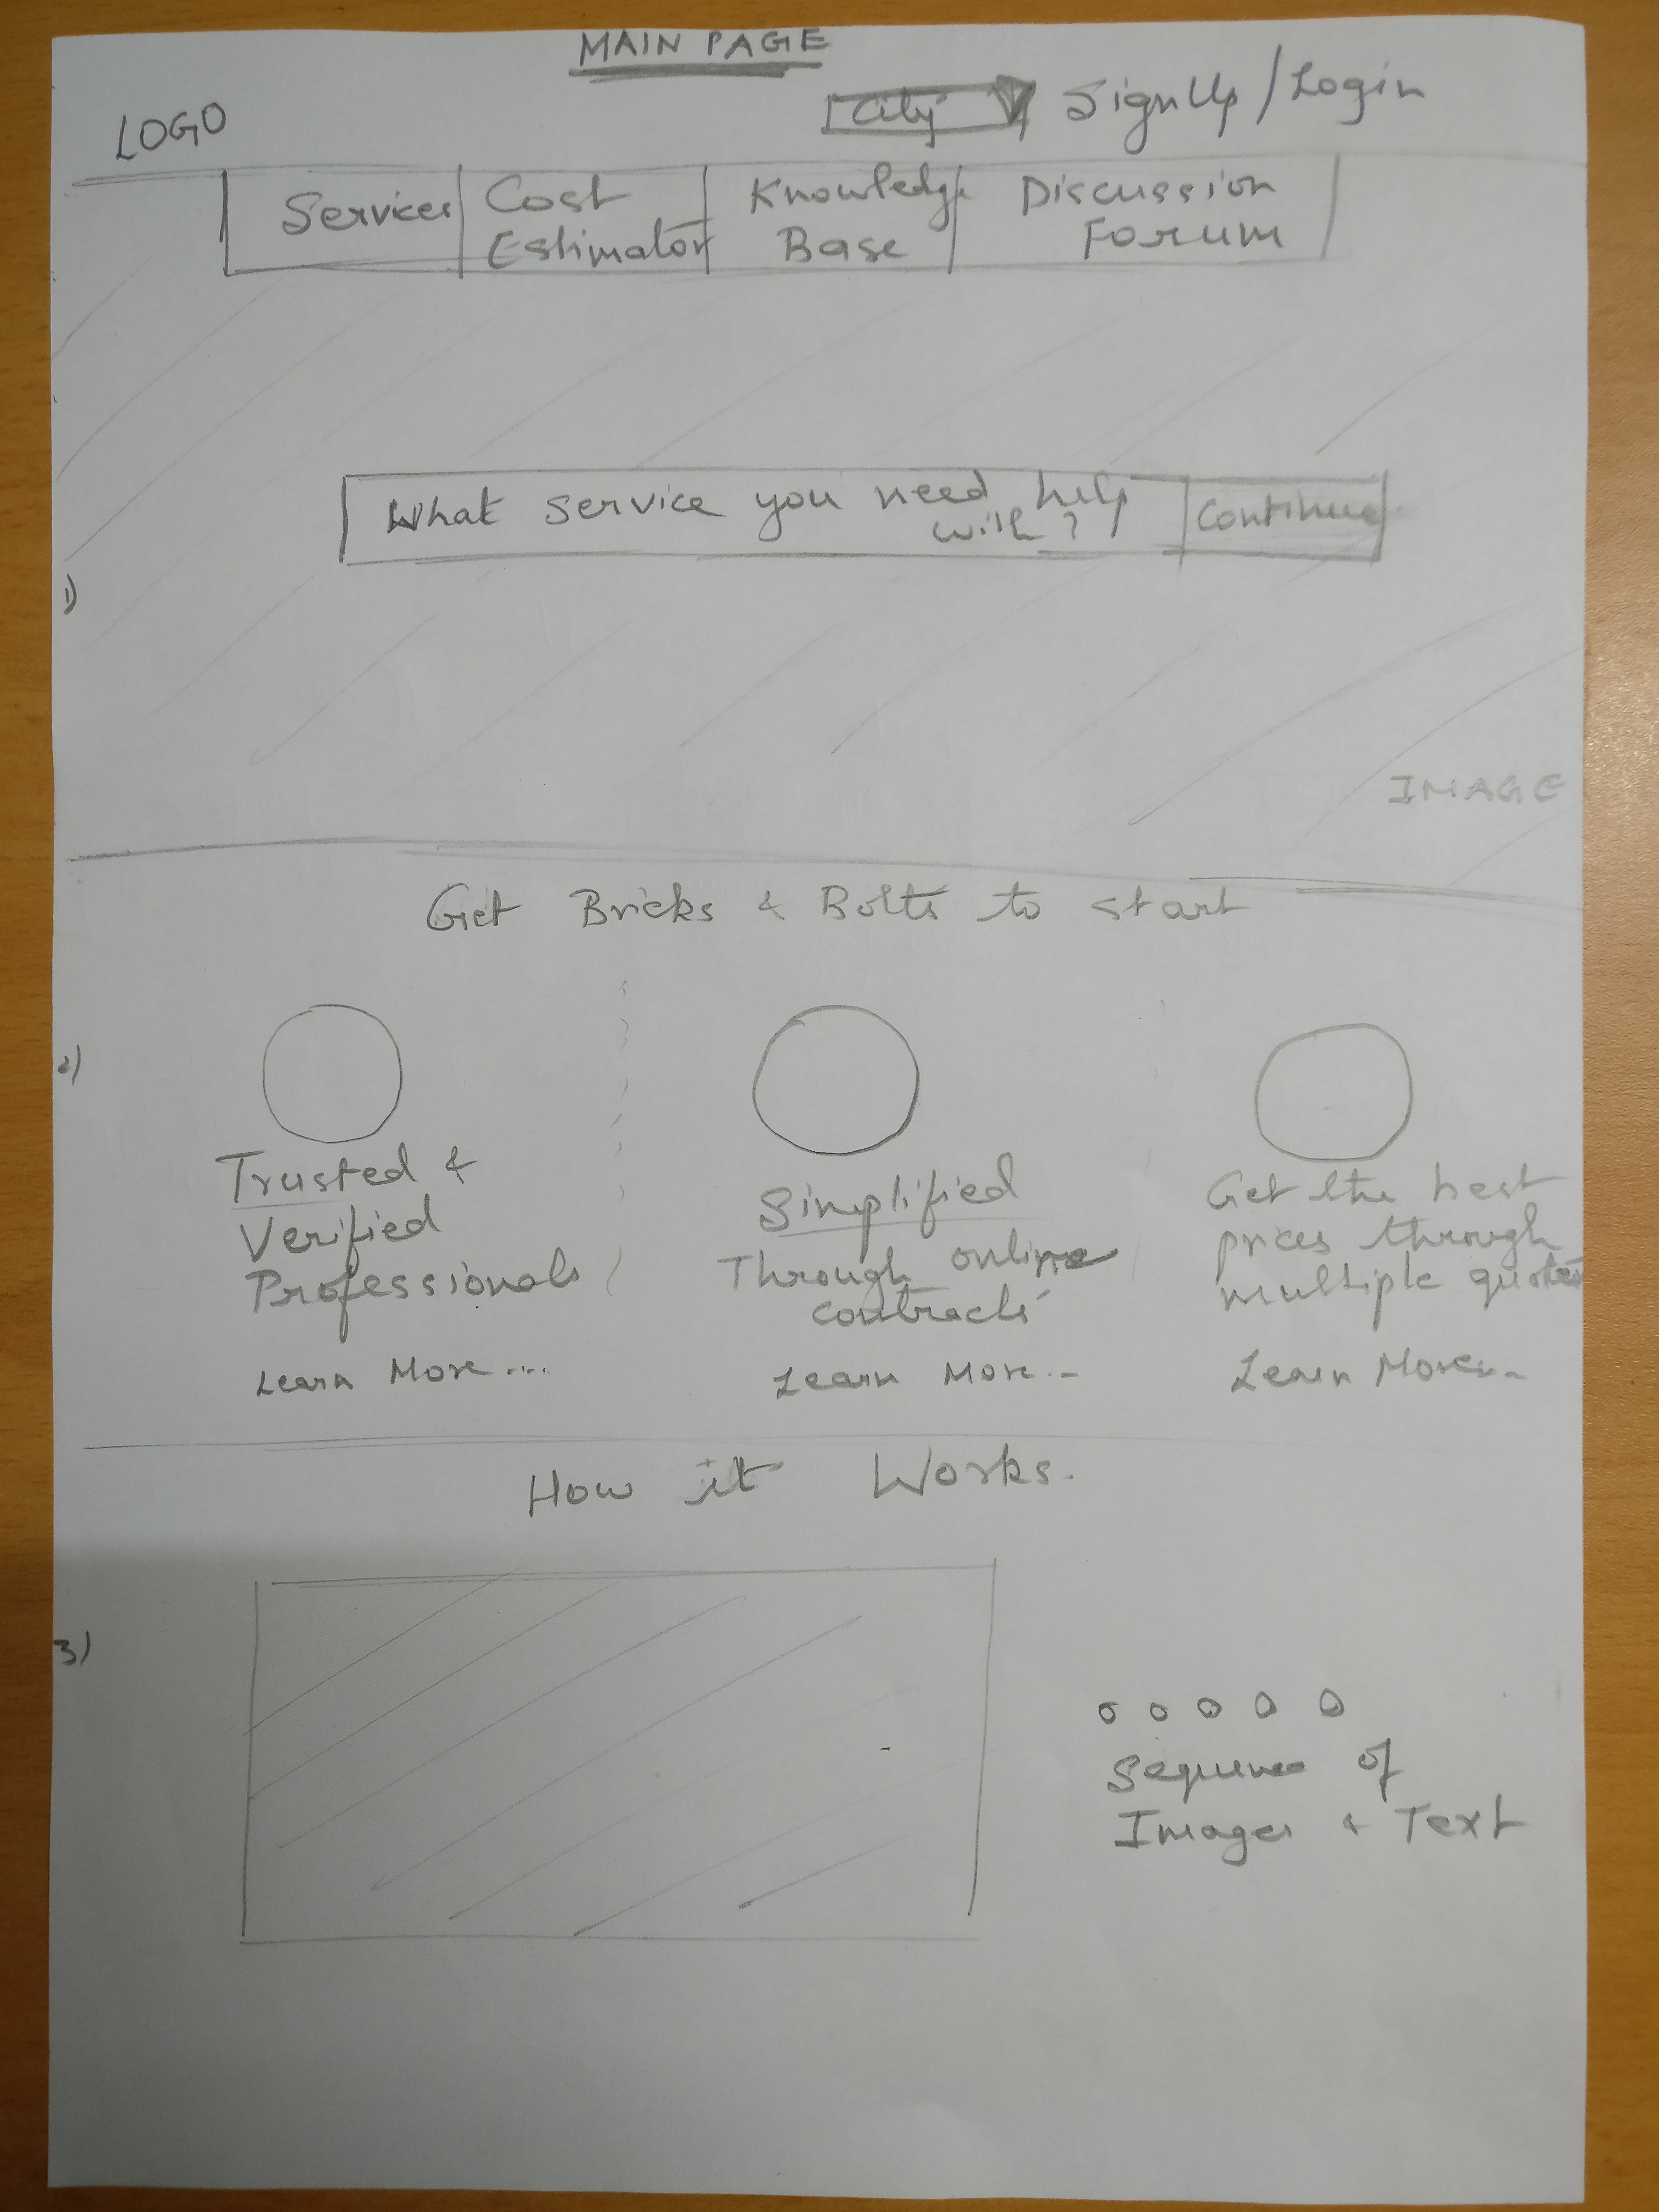 MAIN PAGE
LOGO
City SignUp / Login
Services Cost Estimator Knowledge Base Discussion Forum
What service you need help
with?
Continue
1)
IMAGE
Get Bricks & Bolts to start
2)
Trusted &
Verified
Professionals
Learn More....
Simplified
Through online
contracts
Learn More..
Get the best
prices through
multiple quotes
Learn More..
How it Works.
3)
Sequence of
Images & Text